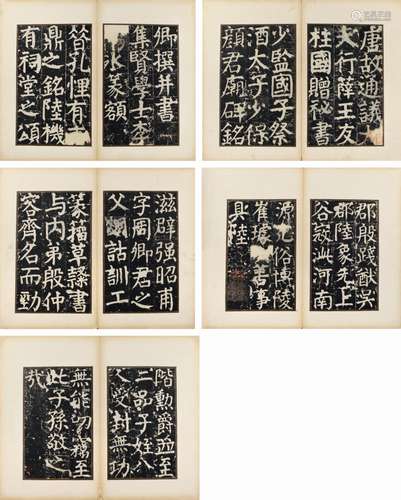 唐故通議大
夫行薛王友
柱國贈秘書
少監國子祭
酒太子少保
顏君廟碑銘
卿撰并書
集賢學士李
冰篆額
昔孔悝有
鼎之銘陸機
有祠堂之頌
郡殷踐猷吳
郡陸象先上
谷寇泚河南
源光俗博陵
崔璩善事
具陸
滋辟强昭甫
字周卿君之
父詁訓工
篆籀草隸書
与内弟殷仲
容齊名而勁
階勳爵並至
二品子姪八
人受封無功
無能叨竊至
此子孫敬之
哉